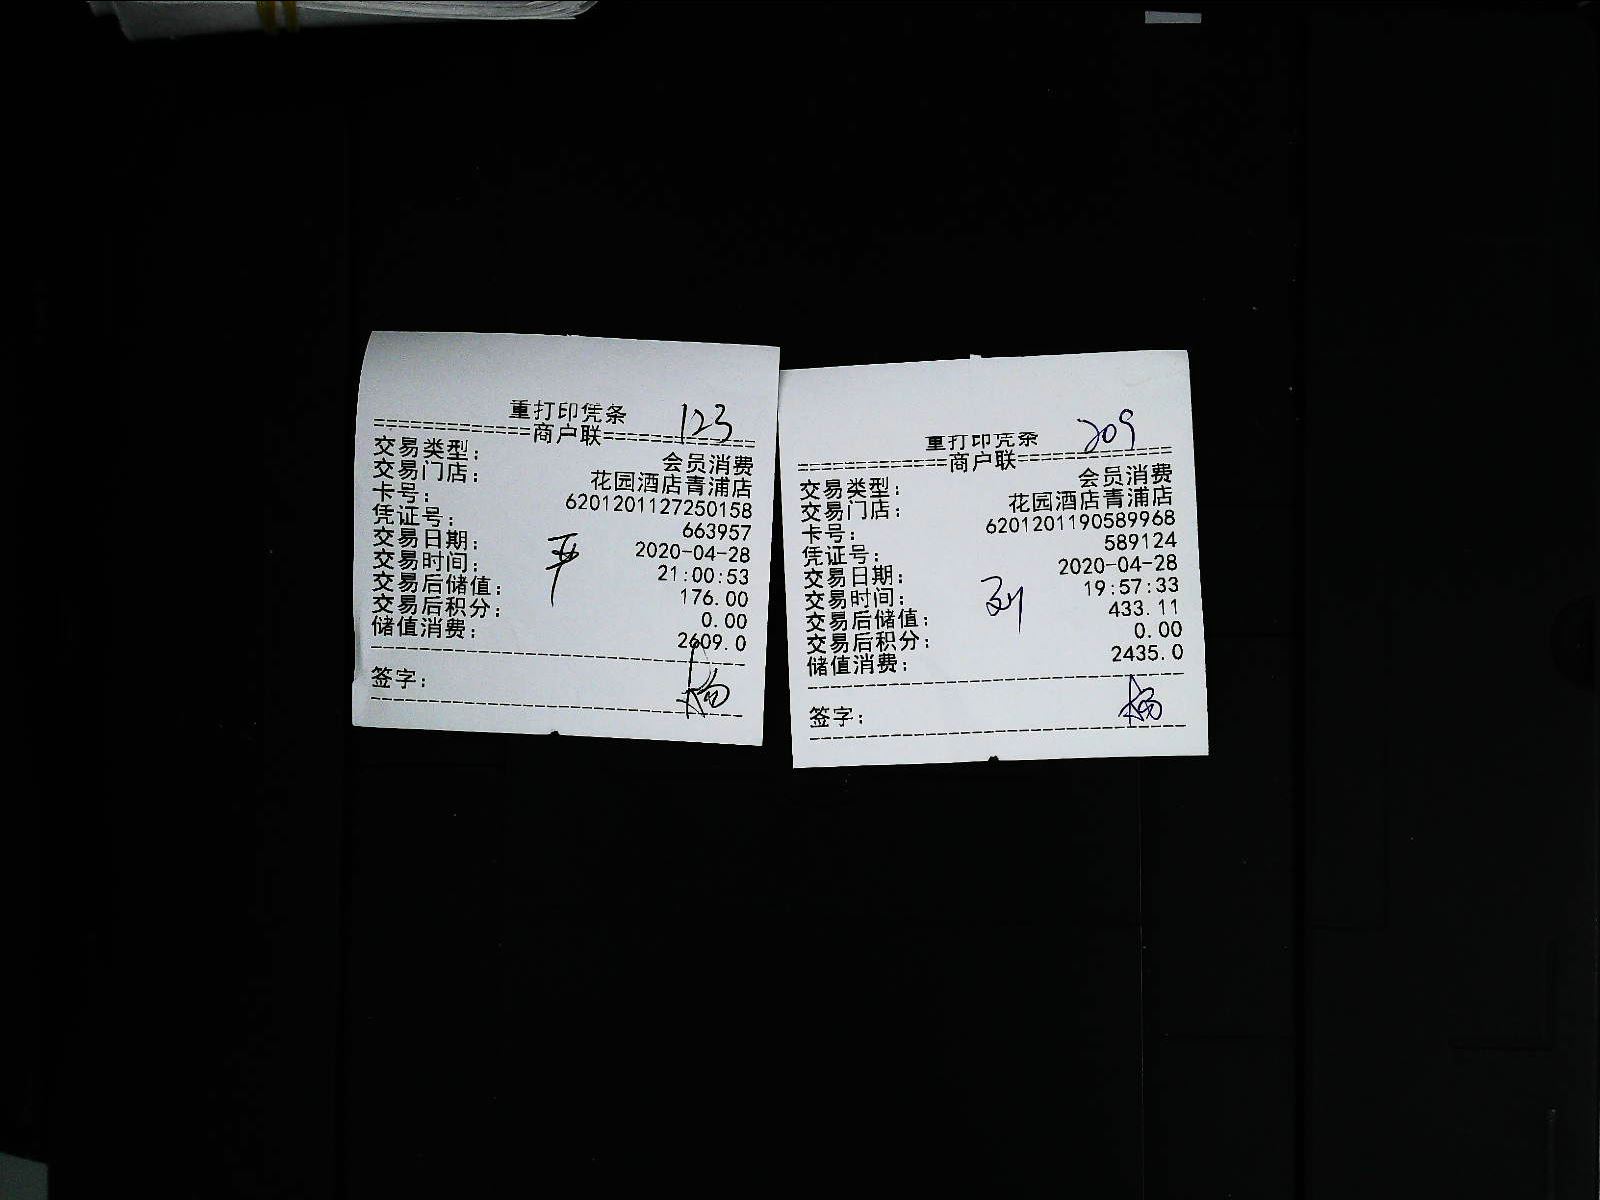 重打印凭条 123
============商户联=============
交易类型： 会员消费
交易门店： 花园酒店青浦店
卡号： 6201201127250158
凭证号： 663957
交易日期： 2020-04-28
交易时间： 21:00:53
交易后储值： 176.00
交易后积分： 0.00
储值消费： 2609.0
签字： 杨
重打印凭条 209
============商户联=============
交易类型： 会员消费
交易门店： 花园酒店青浦店
卡号： 6201201190589968
凭证号： 589124
交易日期： 2020-04-28
交易时间： 19:57:33
交易后储值： 433.11
交易后积分： 0.00
储值消费： 2435.0
签字： 杨